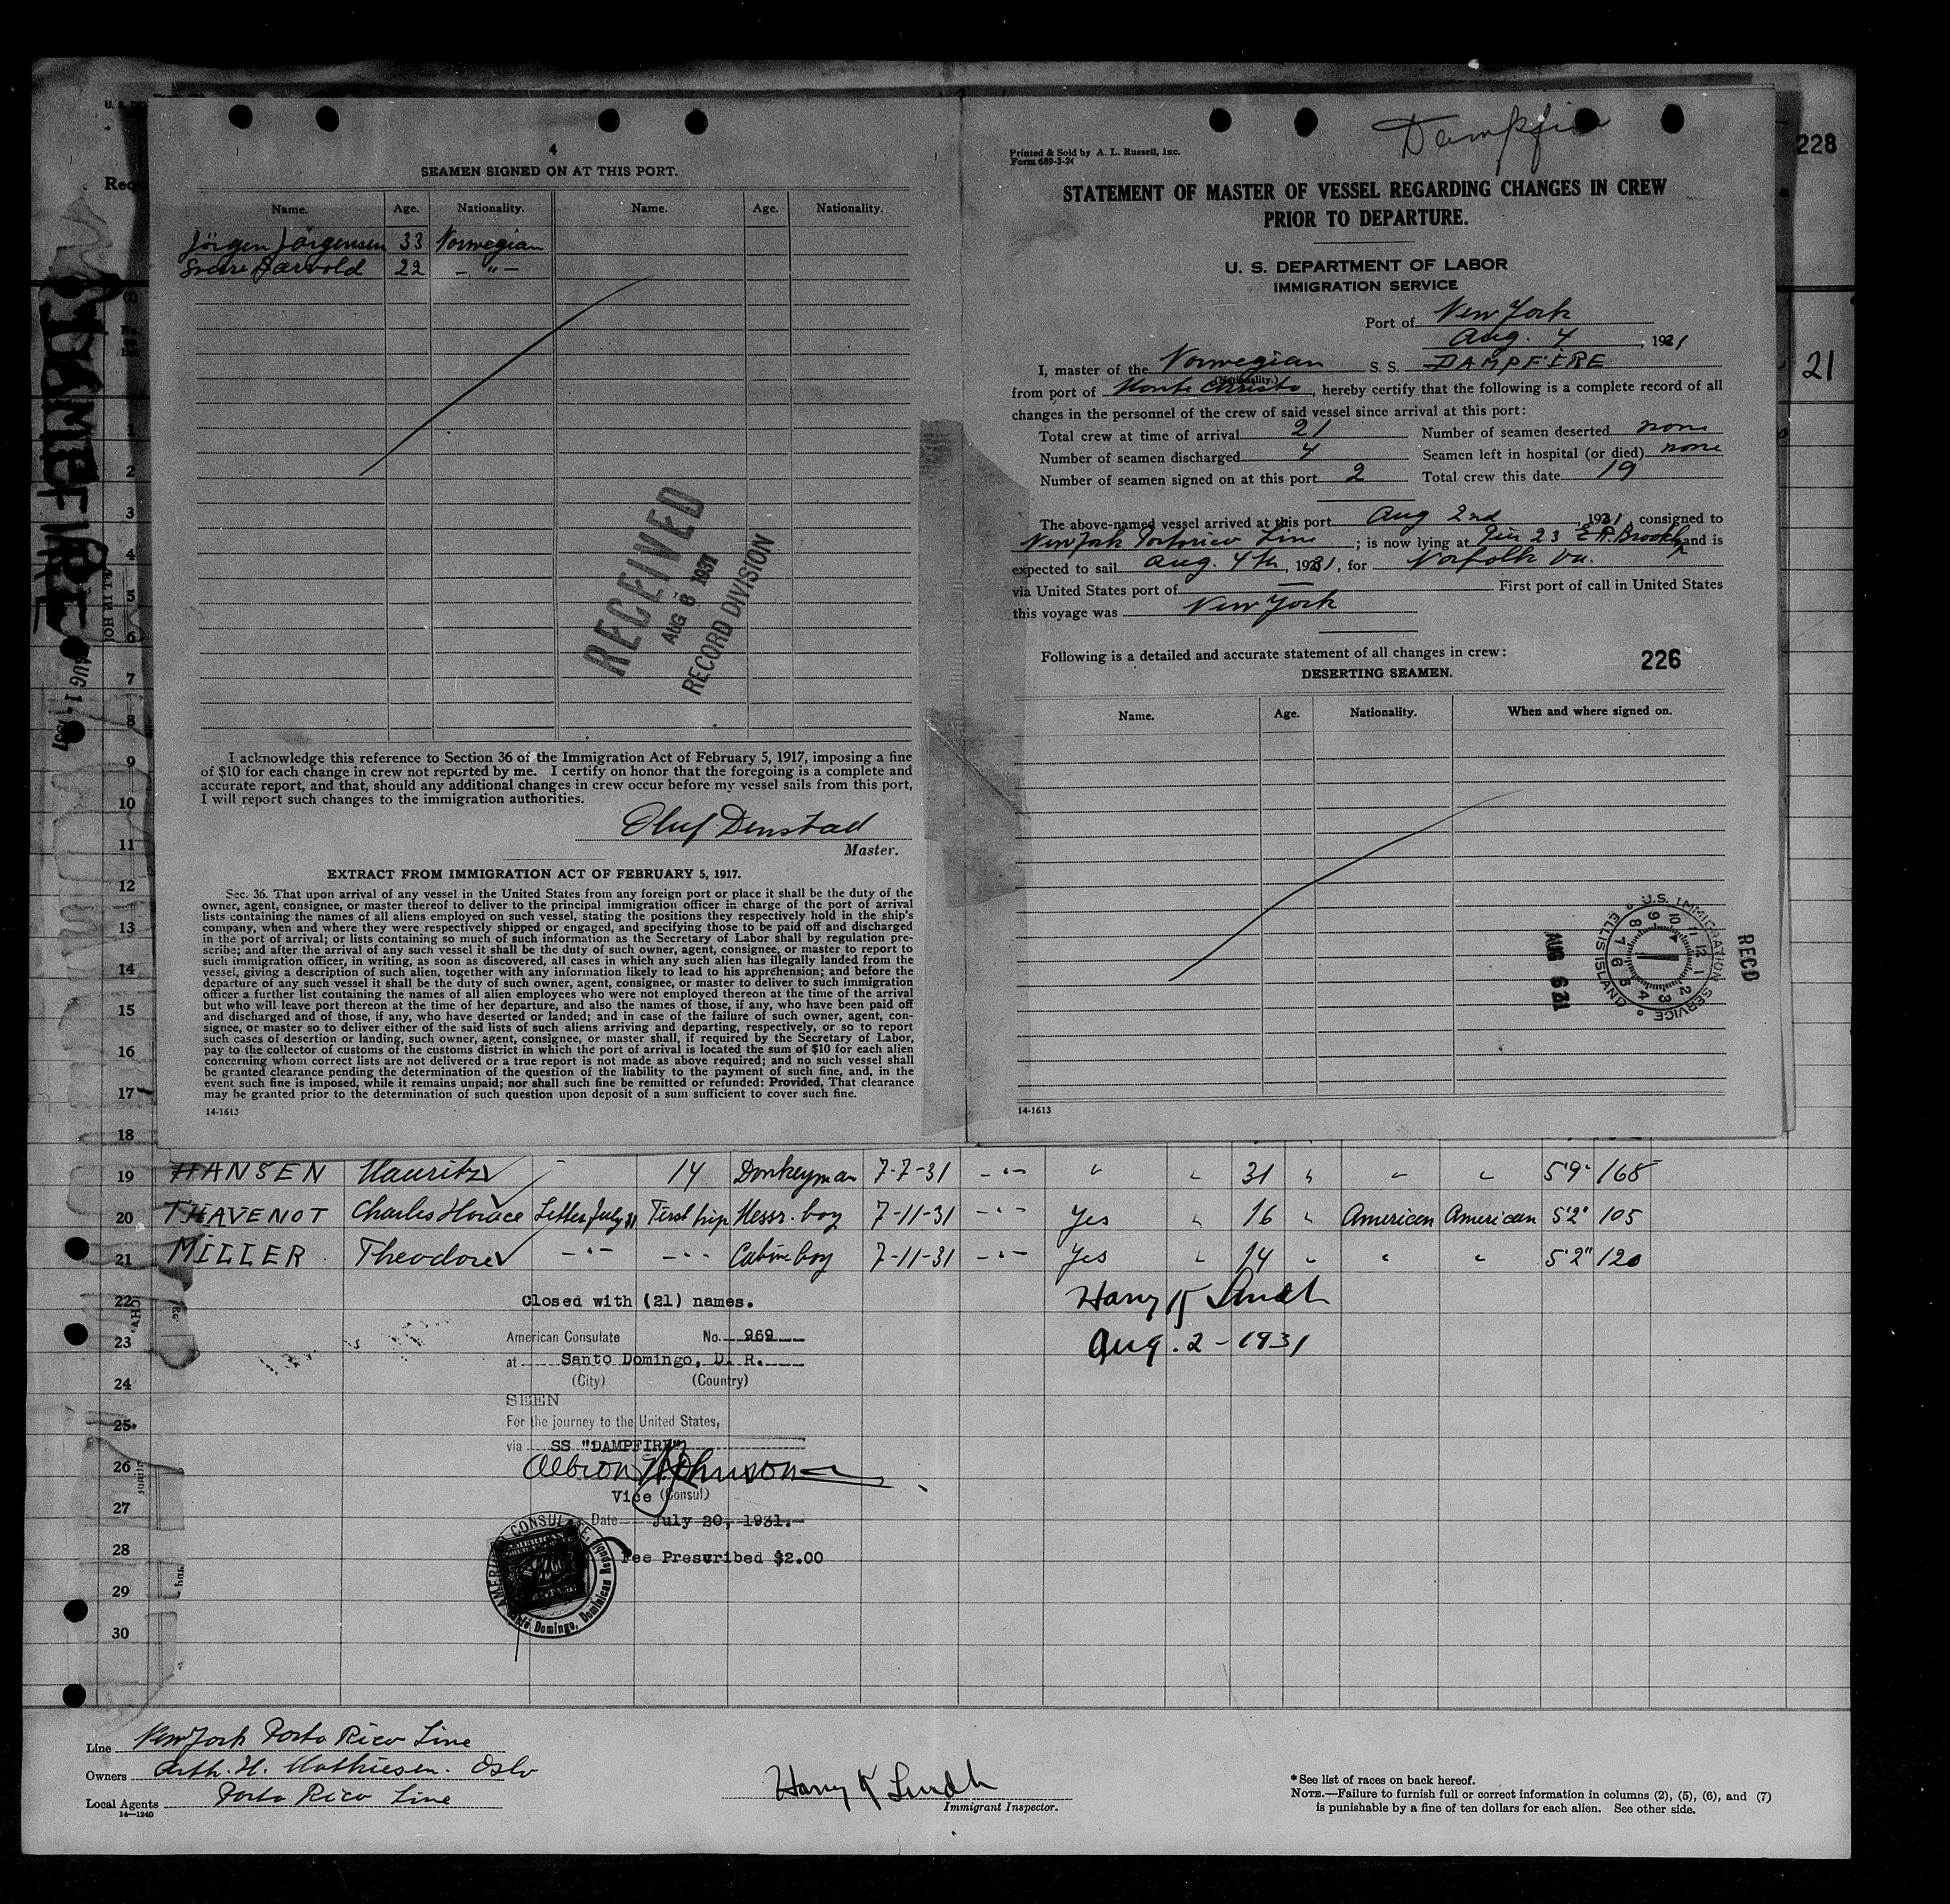 4
SEAMEN SIGNED ON AT THIS PORT.
Name. Age. Nationality. Name. Age. Nationality.
Jörgen Jörgensen 33 Norwegian
22 - " -
RECEIVED
AUG 6 1931
RECORD DIVISION
I acknowledge this reference to Section 36 of the Immigration Act of February 5, 1917, imposing a fine
of $10 for each change in crew not reported by me. I certify on honor that the foregoing is a complete and
accurate report, and that, should any additional changes in crew occur before my vessel sails from this port,
I will report such changes to the immigration authorities.
Oluf Denstad
Master.
EXTRACT FROM IMMIGRATION ACT OF FEBRUARY 5, 1917.
Sec. 36. That upon arrival of any vessel in the United States from any foreign port or place it shall be the duty of the
owner, agent, consignee, or master thereof to deliver to the principal immigration officer in charge of the port of arrival
lists containing the names of all aliens employed on such vessel, stating the positions they respectively hold in the ship's
company, when and where they were respectively shipped or engaged, and specifying those to be paid off and discharged
in the port of arrival; or lists containing so much of such information as the Secretary of Labor shall by regulation pre-
scribe; and after the arrival of any such vessel it shall be the duty of such owner, agent, consignee, or master to report to
such immigration officer, in writing, as soon as discovered, all cases in which any such alien has illegally landed from the
vessel, giving a description of such alien, together with any information likely to lead to his apprehension; and before the
departure of any such vessel it shall be the duty of such owner, agent, consignee, or master to deliver to such immigration
officer a further list containing the names of all alien employees who were not employed thereon at the time of the arrival
but who will leave port thereon at the time of her departure, and also the names of those, if any, who have been paid off
and discharged and of those, if any, who have deserted or landed; and in case of the failure of such owner, agent, con-
signee, or master so to deliver either of the said lists of such aliens arriving and departing, respectively, or so to report
such cases of desertion or landing, such owner, agent, consignee, or master shall, if required by the Secretary of Labor,
pay to the collector of customs of the customs district in which the port of arrival is located the sum of $10 for each alien
concerning whom correct lists are not delivered or a true report is not made as above required; and no such vessel shall
be granted clearance pending the determination of the question of the liability to the payment of such fine, and, in the
event such fine is imposed, while it remains unpaid; nor shall such fine be remitted or refunded: Provided, That clearance
may be granted prior to the determination of such question upon deposit of a sum sufficient to cover such fine.
14-1613
Dampfire
Printed & Sold by A. L. Russell, Inc.
Form 689-3-2
STATEMENT OF MASTER OF VESSEL REGARDING CHANGES IN CREW
PRIOR TO DEPARTURE.
U. S. DEPARTMENT OF LABOR
IMMIGRATION SERVICE
Port of New York
Aug. 4, 1931
I, master of the Norwegian S. S. DAMPFIRE
(Nationality.)
from port of Monte Christo, hereby certify that the following is a complete record of all
changes in the personnel of the crew of said vessel since arrival at this port:
Total crew at time of arrival 21 Number of seamen deserted none
Number of seamen discharged 4 Seamen left in hospital (or died) none
Number of seamen signed on at this port 2 Total crew this date 19
The above-named vessel arrived at this port Aug 2nd, 1931, consigned to
New York Portorico Line; is now lying at Pier 23 E.R. Brookly and is
expected to sail Aug. 4th, 1931, for Norfolk Va.
via United States port of — First port of call in United States
this voyage was New York
Following is a detailed and accurate statement of all changes in crew: 226
DESERTING SEAMEN.
Name. Age. Nationality. When and where signed on.
RECD
U.S. IMMIGRATION SERVICE
ELLIS ISLAND
AUG 6 31
14-1613
228
21
DAMPFIRE
AUG 1 - 1931
1
2
3
5
6
7
8
9
10
11
12
13
14
15
16
17
18
19 HANSEN Mauritz - 14 Donkeyman 7-7-31 - " - " " 31 " " " 5'9" 168
20 THAVENOT Charles Horace Letter July 31 First trip Messr. boy 7-11-31 - " - Yes " 16 " American American 5'2" 105
21 MILLER Theodore - " - - " - Cabin boy 7-11-31 - " - Yes " 14 " " " 5'2" 120
22 Closed with (21) names. Harry K Lindh
23 American Consulate No. 969 Aug. 2 - 1931
at Santo Domingo, D. R.
24 (City) (Country)
SEEN
25 For the journey to the United States,
via SS "DAMPFIRE"
26 Albion W Johnson
27 Vice (Consul)
Date July 20, 1931.
28 Fee Prescribed $2.00
AMERICAN CONSULATE,
Santo Domingo, Dominican Republic
29
30
Line New York Porto Rico Line
Owners Arth. H. Mathiesen. Oslo
Local Agents Porto Rico Line
14—1240
Harry K Lindh
Immigrant Inspector.
* See list of races on back hereof.
NOTE.—Failure to furnish full or correct information in columns (2), (5), (6), and (7)
is punishable by a fine of ten dollars for each alien. See other side.